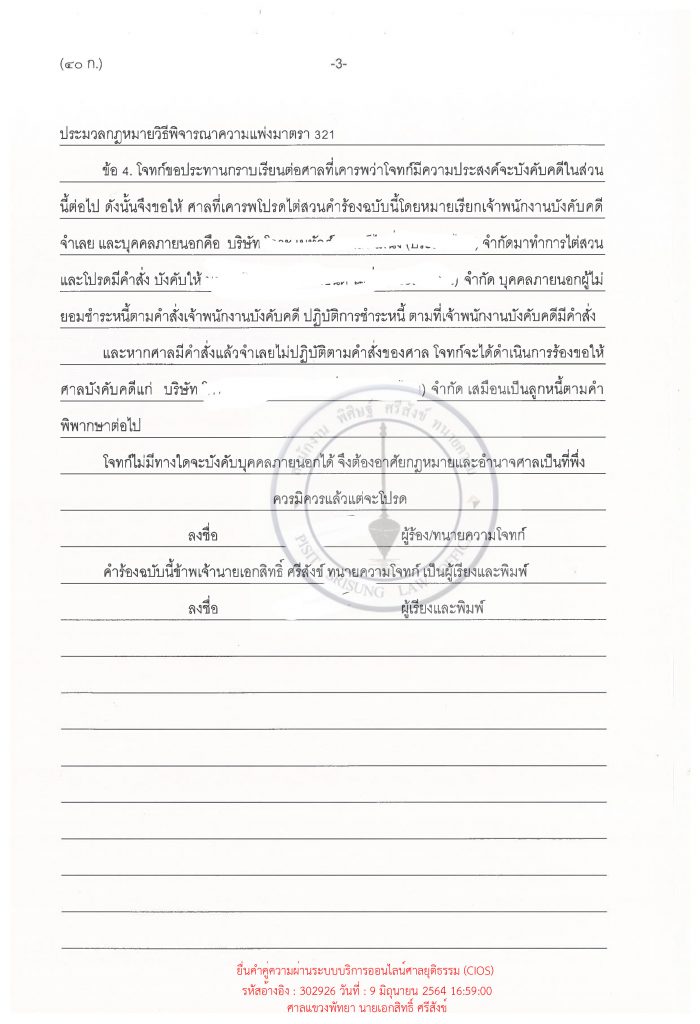 (๔๐ ก.)
-3-
ประมวลกฎหมายวิธีพิจารณาความแพ่งมาตรา 321
ข้อ 4. โจทก์ขอประทานกราบเรียนต่อศาลที่เคารพว่าโจทก์มีความประสงค์จะบังคับคดีในส่วน
นี้ต่อไป ดังนั้นจึงขอให้ ศาลที่เคารพโปรดไต่สวนคำร้องฉบับนี้โดยหมายเรียกเจ้าพนักงานบังคับคดี
จำเลย และบุคคลภายนอกคือ บริษัท จำกัดมาทำการไต่สวน
และโปรดมีคำสั่ง บังคับให้ ) จำกัด บุคคลภายนอกผู้ไม่
ยอมชำระหนี้ตามคำสั่งเจ้าพนักงานบังคับคดี ปฏิบัติการชำระหนี้ ตามที่เจ้าพนักงานบังคับคดีมีคำสั่ง
และหากศาลมีคำสั่งแล้วจำเลยไม่ปฏิบัติตามคำสั่งของศาล โจทก์จะได้ดำเนินการร้องขอให้
ศาลบังคับคดีแก่ บริษัท ) จำกัด เสมือนเป็นลูกหนี้ตามคำ
พิพากษาต่อไป
โจทก์ไม่มีทางใดจะบังคับบุคคลภายนอกได้ จึงต้องอาศัยกฎหมายและอำนาจศาลเป็นที่พึ่ง
ควรมิควรแล้วแต่จะโปรด
ลงชื่อ ผู้ร้อง/ทนายความโจทก์
คำร้องฉบับนี้ข้าพเจ้านายเอกสิทธิ์ ศรีสังข์ ทนายความโจทก์ เป็นผู้เรียงและพิมพ์
ลงชื่อ ผู้เรียงและพิมพ์
สำนักงาน พิศิษฐ์ ศรีสังข์ ทนายความ
PISIT SRISUNG LAW OFFICE
ยื่นคำคู่ความผ่านระบบบริการออนไลน์ศาลยุติธรรม (CIOS)
รหัสอ้างอิง : 302926 วันที่ : 9 มิถุนายน 2564 16:59:00
ศาลแขวงพัทยา นายเอกสิทธิ์ ศรีสังข์